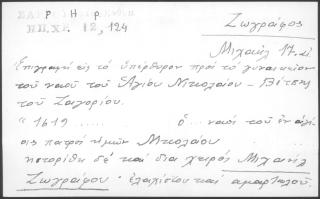 Ρ Η Ρ
ΗΠ.ΧΡ. 12, 124
Ζωγράφος
Μιχαήλ 17. αἰ
Ἐπιγραφή εἰς το ὑπέρθυρον πρός τό γυναικεῖον
τοῦ ναοῦ τοῦ Ἁγίου Νικολάου - Βίτσης
τοῦ Ζαγορίου.
"1619 ..... ὁ .. ναός τοῦ ἐν ἁγί
οις πατρός ἡμῶν Νικολάου
ηστορίθη δέ καί δια χειρός Μιχαήλ
Ζωγράφου · ἐλαχίστου καί αμαρτολοῦ.